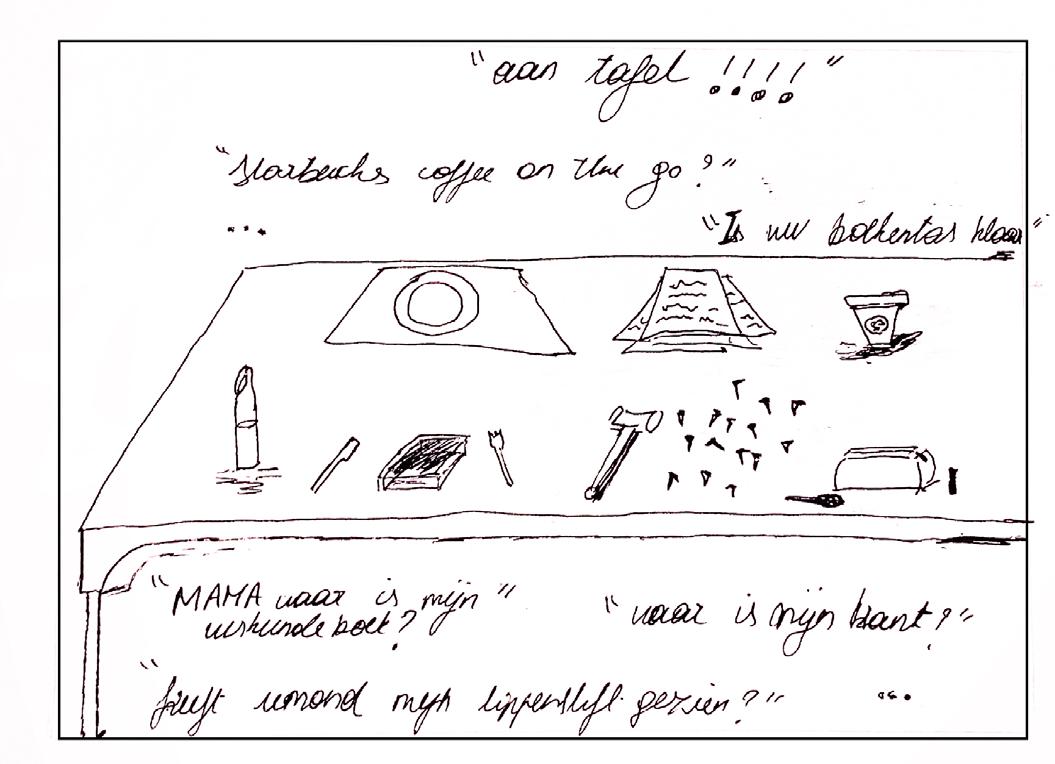 "aan tafel !!!!"
"Starbucks coffee on the go?"
...
"Is uw boekentas klaar"
"MAMA waar is mijn"
wiskunde boek?
"waar is mijn krant?"
"Heeft iemand mijn lippenstift gezien?"
...